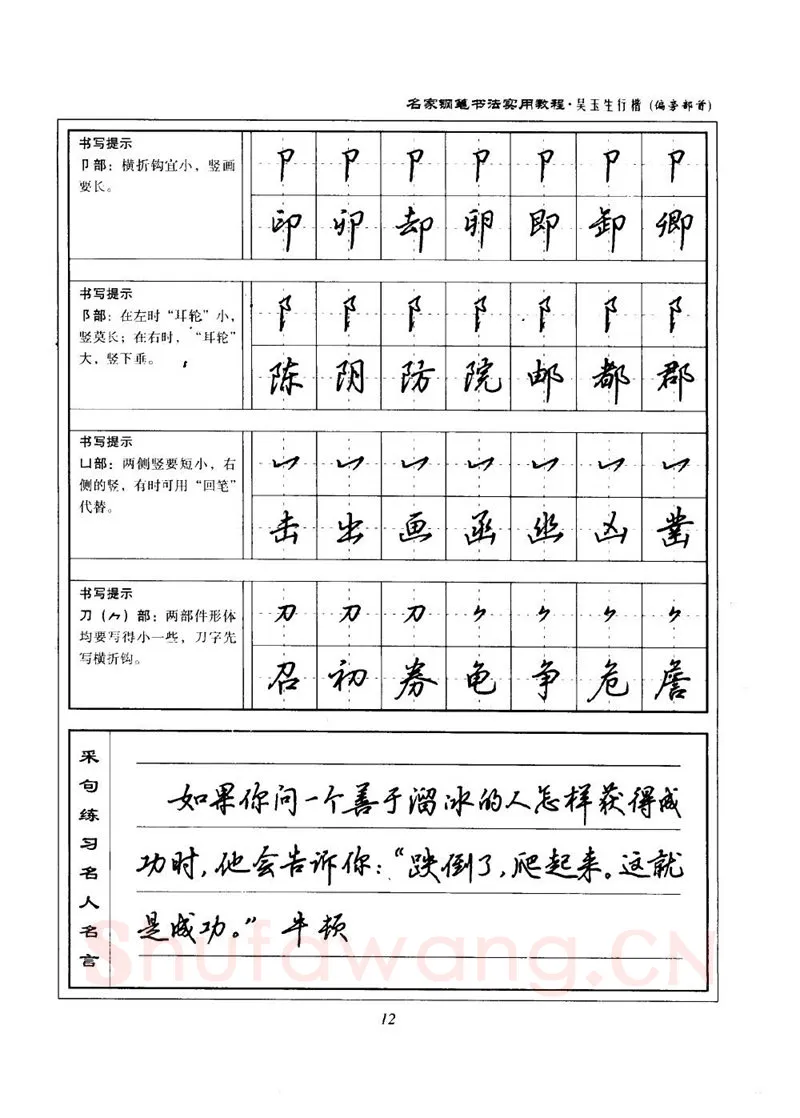 名家钢笔书法实用教程·吴玉生行楷(偏旁部首)
书写提示
卩部：横折钩宜小，竖画
要长。
卩 卩 卩 卩 卩 卩 卩
印 卯 却 卵 即 卸 卿
书写提示
阝部：在左时“耳轮”小，
竖莫长；在右时，“耳轮”
大，竖下垂。
阝 阝 阝 阝 阝 阝 阝
陈 阴 防 院 邮 都 郡
书写提示
凵部：两侧竖要短小，右
侧的竖，有时可用“回笔”
代替。
凵 凵 凵 凵 凵 凵 凵
击 出 画 函 幽 凶 凿
书写提示
刀（⺈）部：两部件形体
均要写得小一些，刀字先
写横折钩。
刀 刀 刀 ⺈ ⺈ ⺈ ⺈
召 初 券 龟 争 危 詹
采句练习名人名言
如果你问一个善于溜冰的人怎样获得成
功时,他会告诉你:“跌倒了,爬起来。这就
是成功。” 牛顿
Shufawang.CN
12